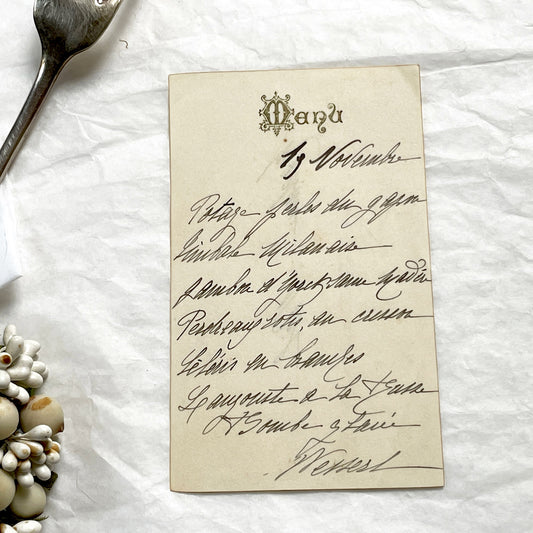 Menu
19 Novembre
Potage perles du Japon
Timbale Milanaise
Jambon d'York sauce Madère
Perdreaux rotis, au cresson
Céleris en branches
Langouste à la Russe
Bombe glacée
Dessert